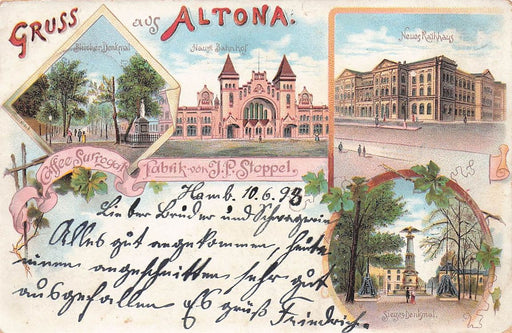 GRUSS aus ALTONA.
Blücher Denkmal
Haupt Bahnhof
Neues Rathhaus
Caffee-Surrogat
Fabrik von J.P. Stoppel.
Hamb. 10.6.98
Lieber Bruder und Schwägerin
Alles gut angekommen, heute
einen angeschnitten sehr gut
ausgefallen Es grüß
Friedrich.
Sieges Denkmal.